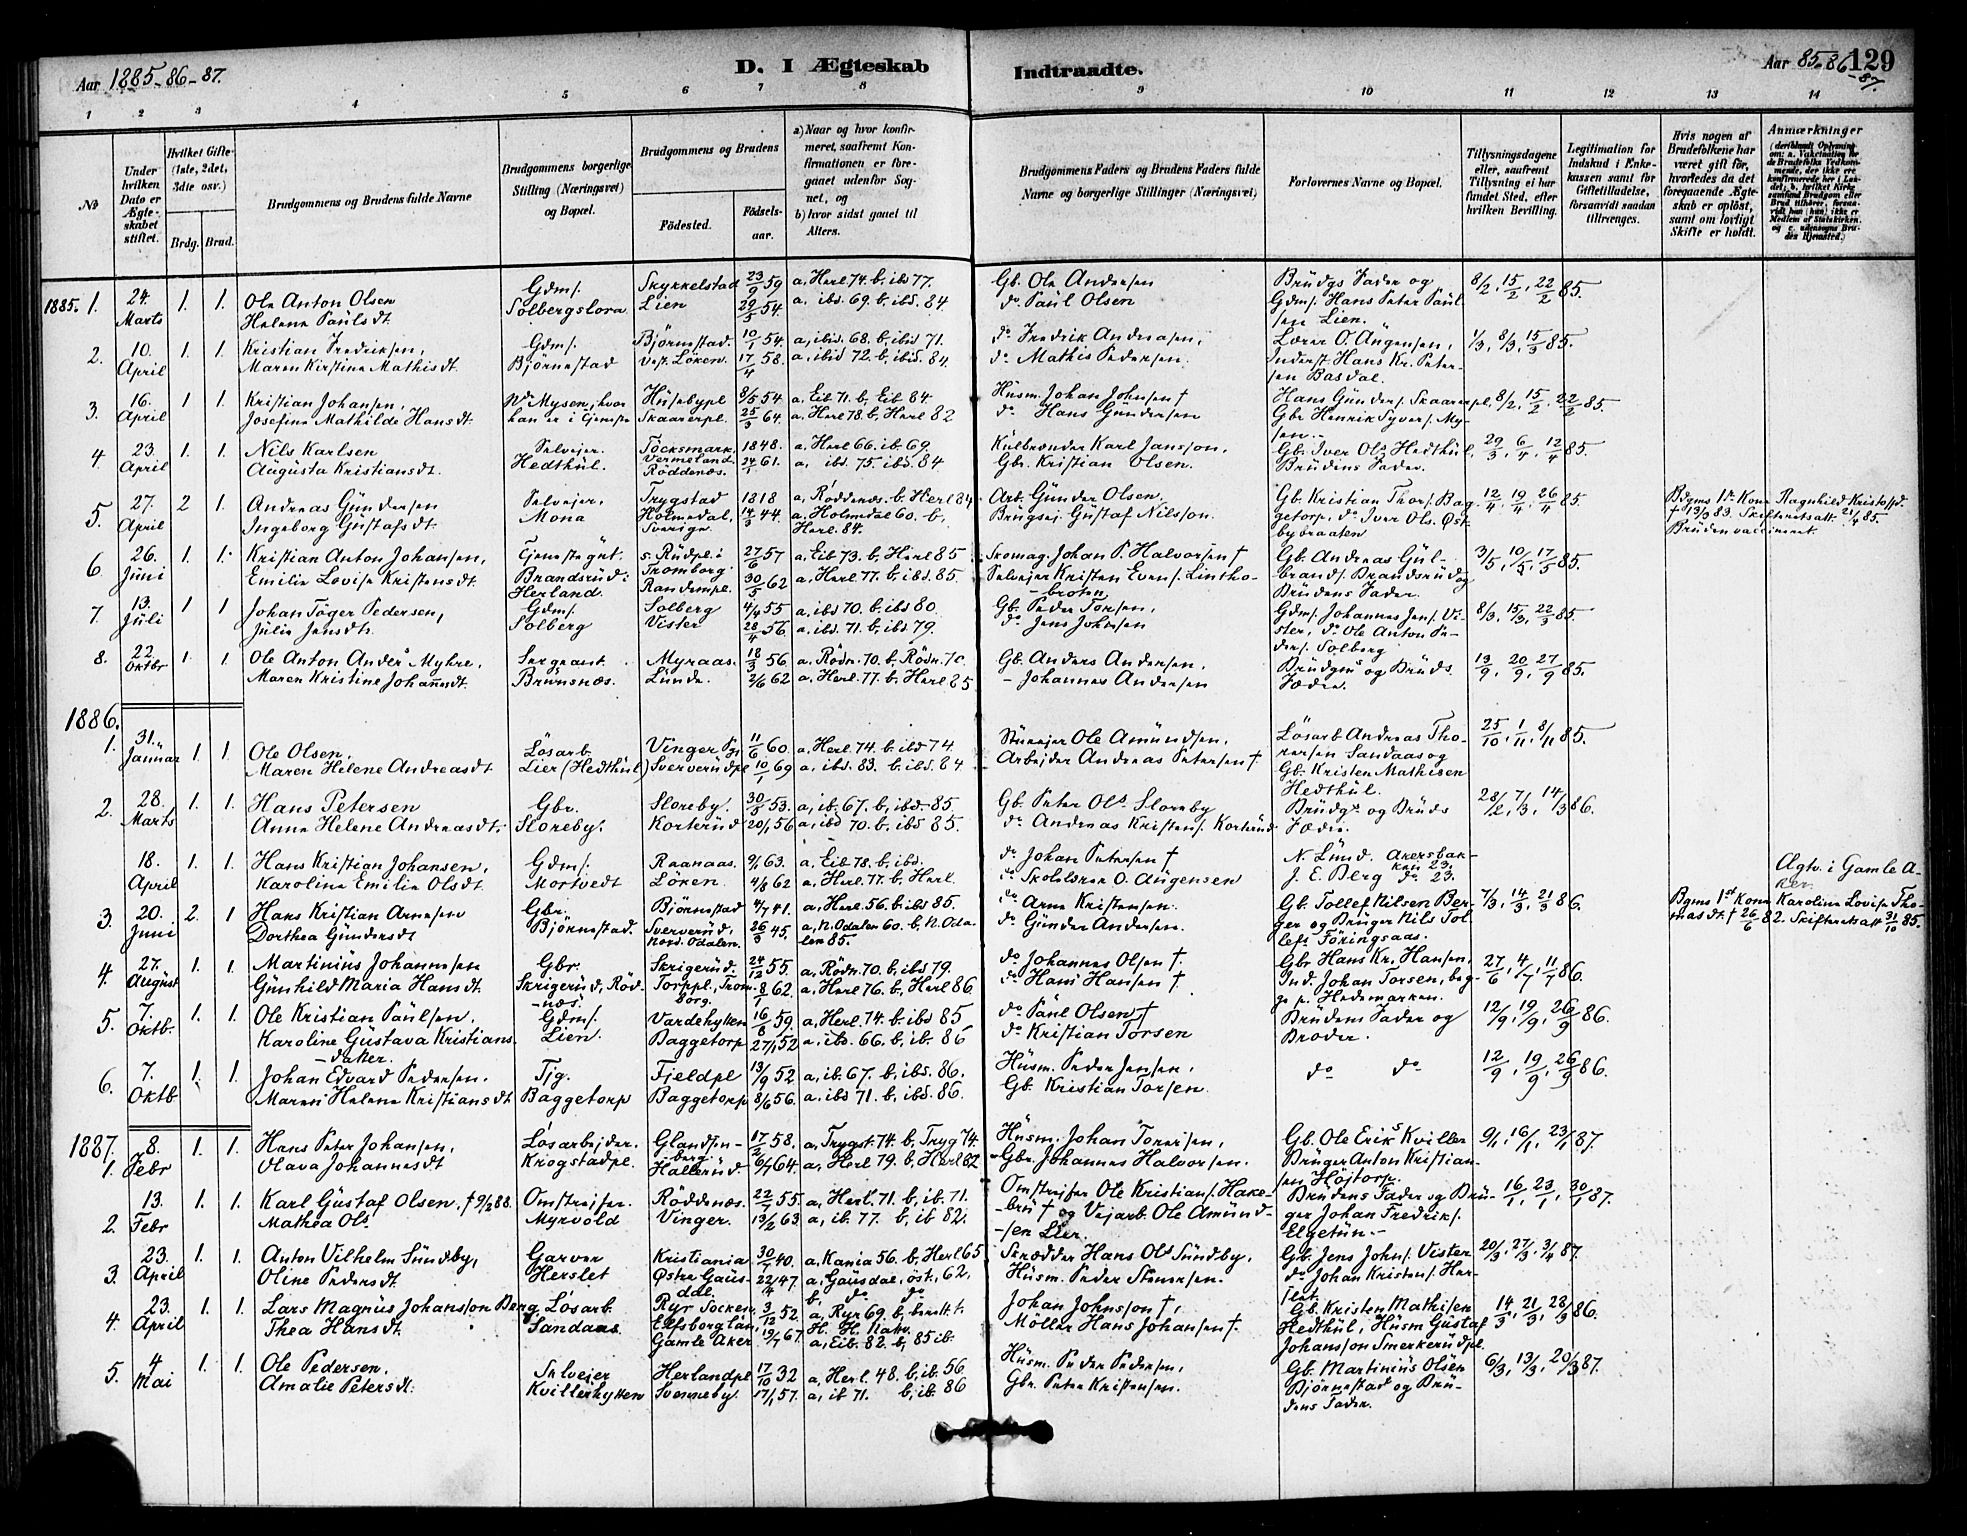 Aar 1885-86-87.
D. I Ægteskab
Indtraadte.
Aar 85-86-87. 129
1 2 3 4 5 6 7 8 9 10 11 12 13 14
No
Under hvilken Dato er Ægteskabet stiftet.
Hvilket Gifte (1ste, 2det, 3die osv.)
Brdg. Brud.
Brudgommens og Brudens fulde Navne
Brudgommens borgerlige Stilling (Næringsvei) og Bopæl.
Brudgommens og Brudens
Födested. Födselsaar.
a) Naar og hvor konfirmeret, saafremt Konfirmationen er foregaaet udenfor Sognet, og
b) hvor sidst gaaet til Alters.
Brudgommens Faders og Brudens Faders fulde Navne og borgerlige Stillinger (Næringsvei)
Forlovernes Navne og Bopæl.
Tillysningsdagene eller, saafremt Tillysning ei har fundet Sted, efter hvilken Bevilling.
Legitimation for Indskud i Enkekassen samt for Giftetilladelse, forsaavidt saadan tiltrænges.
Hvis nogen af Brudefolkene har været gift før, hvorledes da det foregaaende Ægteskab er opløst, samt om lovligt Skifte er holdt.
Anmærkninger
1885. 1. 24. Marts 1. 1. Ole Anton Olsen Gdms. Skykkelstad 23/9 59 a, Herl 74. b, ibs 77. Gb. Ole Andersen Brudgs Fader og 8/2, 15/2, 22/2 85.
Helene Paulsdt Solbergslora Lien 29/5 54. a. ibs. 69. b, ibd. 84 do Paul Olsen Gdms. Hans Peter Paulsen Lien.
2. 10. April 1. 1. Kristian Fredriksen, Gdms. Björnestad. 10/1 54. a, ibid. 68. b, ibd 71. do Fredrik Andersen, Lærer O. Augensen, 1/3, 8/3, 15/3 85.
Maren Kirstine Mathisdt. Björnestad Vest. Löken. 17/4 58. a, ibid 72. b, ibid. 84. do Mathis Pedersen. Inderst. Hans Kr. Petersen Basdal.
3. 16. April 1 1. Kristian Johansen, Nd. Mysen, hvor Husebypl 8/5 54 a, Eib 71. b, Eib 84 Husm. Johan Johnsen † Hans Gunders. Skaarerpl, 8/2, 15/2, 22/2 85.
Josefine Mathilde Hansdt. han er i Tjeneste Skaarerpl. 25/3 64. a, Herl 78. b, Herl 82 do Hans Gundersen Gbr. Henrik Syvers. Mysen.
4. 23. April 1. 1. Nils Karlsen Selveier. Töcksmark, 1848. a. Herl 66. ib. 69. Kulbrænder Karl Jansson, Gb. Iver Ols. Hedthul, 29/3, 6/4, 12/4 85.
Augusta Kristiansdt. Hedthul. Vermeland. Röddenæs. 24/1 61. a, ibs. 75. ibs. 84 Gbr. Kristian Olsen. Brudens Fader.
5. 27. April 2 1. Andreas Gundersen Selveier, Trygstad 1818 a, Röddenæs. b. Herl 84 Arb. Gunder Olsen, Gb. Kristian Thors. Baggetorp, do Iver Ols. Østbybraaten 12/4, 19/4, 26/4 85. Bdgms 1ste Kone Ragnhild Kristofsd. † 13/9 83. Skifteretsatt. 21/4 85.
Ingeborg Gustafsdt. Mona Holmedal, Sverige. 14/3 44. a. Holmedal 60. b, Herl. 84. Brugsej. Gustaf Nilsson. Bruden vaccineret.
6. 26. Juni 1 1. Kristian Anton Johansen, Tjenestegut. s. Rudpl. i Tromborg 27/6 57 a, Eib 73. b, Herl 85 Skomag. Johan P. Halvorsen † Gb. Andreas Gulbrands. Brandsrud og 3/5, 10/5, 17/5 85.
Emilie Lovise Kristensdt. Brandsrud: Herland. Randempl. 30/5 62 a, Herl 77. b, ibs. 85. Selveier Kristen Evens. Linthobroten Brudens Fader.
7. 13. Juli 1 1 Johan Töger Pedersen, Gdms. Solberg 4/9 55 a, ibs 70. b, ibs 80. Gb. Peder Torsen, Gdms. Johannes Jens. Vister, do Ole Anton Peders. Solberg 8/3, 15/3, 22/3 85.
Julie Jensdt. Solberg Vister 28/4 56 a, ibs. 71. b, ibs 79. do Jens Johnsen
8. 22. Oktbr 1. 1. Ole Anton Anders Myhre, Sergeant. Myraas. 18/3 56 a. Rödn. 70. b, Rödn. 70 Gb. Anders Andersen Brudgms og Bruds Fædre. 13/9, 20/9, 27/9 85.
Maren Kristine Johansdt. Brunsnæs. Lunde. 2/6 62 a, Herl. 77. b, Herl 85 - Johannes Andersen
1886.
1. 31. Januar 1. 1 Ole Olsen, Lösarb. Vinger Pgj 11/6 60. a, Herl. 74. b. ibd 74. Stuveier Ole Amundsen, Lösarb Andreas Thorersen Sandaas og 25/10, 1/11, 8/11 85.
Maren Helene Andreasdt Lier (Hedthul) Sververudpl 10/1 69 a. ibs. 83. b. ibs. 84. Arbejder Andreas Petersen † Gb. Kristen Mathisen Hedthul.
2. 28. Marts 1. 1. Hans Petersen Gbr. Sloreby. 30/5 53. a, ib. 67. b, ibd. 85 Gb. Peter Ols. Sloreby Brudgs og Bruds Fædre. 28/2, 7/3, 14/3 86.
Anne Helene Andreasdt. Sloreby. Korterud 20/1 56 a, ibd 70. b, ibd 85. do Andreas Kristens. Korterud
18. April 1. 1. Hans Kristian Johansen, Gdms. Raanaas. 9/1 63. a, Eib 78. b, ibd. do Johan Petersen † N. Lund. Akersbakken 23. Ægtv. i Gamle Aker.
Karoline Emilie Olsdt. Mortvedt Löken. 4/8 62 a, Herl. 77. b, Herl. do Skolelærer O. Augensen J. E. Berg do 23.
3 20. Juni 2. 1 Hans Kristian Arnesen Gbr. Björnestad 4/7 41. a, Herl. 56. b, ibs 85. do Arne Kristensen. Gb. Tollef Nilsen Berger og Bruger Nils Tollefs Töringsaas. 7/3, 14/3, 21/3 86. Bgms 1ste Kone Karoline Lovise Thomasdt. † 26/6 82. Skifteretsatt 31/10 85.
Dorthea Gundersdt Björnestad. Sververud, Nord. Odalen. 26/3 45. a, N. Odalen 60. b, N. Odalen 85. do Gunder Andersen.
4. 27. August 1. 1. Martinius Johannesen Gbr. Skrigerud. 24/12 55. a, Rödn. 70. b, ibs 79. do Johannes Olsen †. Gbr Hans Kr. Hansen, 27/6, 4/7, 11/7 86.
Gunhild Maria Hansdt. Skrigerud, Rödnæs. Torppl, Tromborg. 8/1 62. a, Herl 76. b, Herl 86 do Hans Hansen † Ind. Johan Torsen, begge p. Hedemarken.
5. 7. Oktb. 1. 1. Ole Kristian Paulsen, Gdms. Vardehytten 16/8 59. a, Herl. 74. b, ibd 85 do Paul Olsen † Brudens Fader og Broder. 12/9, 19/9, 26/9 86.
Karoline Gustava Kristiansdatter. Lien. Baggetorp 27/1 52 a. ibs. 66. b, ib. 86 do Kristian Torsen
6. 7. Oktb 1. 1. Johan Edvard Pedersen. Tjg. Fjeldpl 13/9 52. a, ib. 67. b, ibs. 86. Husm. Peder Jensen, do do 12/9, 19/9, 26/9 86.
Maren Helene Kristiansdt Baggetorp Baggetorp 8/6 56. a. ibd 71. b, ibd. 86. Gb. Kristian Torsen.
1887.
1. 8. Febr 1. 1. Hans Peter Johansen, Lösarbejder. Glandsenberg. 17/2 58. a, Trygst. 74. b, Tryg 74. Husm. Johan Torersen, Gb. Ole Eriks Kviller 9/1, 16/1, 23/1 87.
Olava Johannesdt Krogstadpl. Hallerud. 6/7 64. a, Herl 79. b, Herl 82 Gbr. Johannes Halvorsen. Bruger Anton Kristiansen Höjtorp.
2. 13. Febr 1. 1. Karl Gustaf Olsen. † 9/2 88. Omstrejfer. Röddenæs. 22/7 55. a, Herl. 71. b, ib. 71. Omstrejfer Ole Kristians. Hakebru † og Vejarb. Ole Amundsen Lier. Brudens Fader og Bruger Johan Fredriks. Elgetun. 16/1, 23/1, 30/1 87.
Mathea Ols. Myrvold Vinger. 13/2 63. a, ib. 77. b, ib 82.
3. 23. April 1. 1. Anton Vilhelm Sundby, Garver Kristiania 30/7 40. a, Kania 56. b, Herl 65 Skrædder Hans Ols Sundby, Gb. Jens Johs. Vister 20/3, 27/3, 3/4 87.
Oline Pedersdt. Herslet Østre Gausdal. 22/4 47. a, Gausdal, öst., 62, b, do do Husm. Peder Stenersen. do Johan Kristens. Herslet.
4. 23. April 1. 1. Lars Magnus Johansson Berg, Lösarb. Ryr Socken, Elfsborg län, 3/12 52. a, Ryr 69. b, Johan Johnsson †, Gb. Kristen Mathisen Hedthul, Husm Gustaf Johansson Smerkerudpl. 14/3, 21/3, 28/3 86.
Thea Hansdt. Sandaas. Gamle Aker 19/7 67. a, Eib. 82. b, 85 ib. Möller Hans Johansen †.
5. 4 Mai 1. 1. Ole Pedersen. Selveier Herlandpl 17/10 32 a, Herl. 48. b, ib. 56 Husm. Peder Pedersen, Gb. Martinius Olsen Björnestad og Brudens Fader. 6/3, 13/3, 20/3 87.
Amalie Petersdt. Kvillerhytten Svenneby. 17/1 57. a, ib 71. b, ib. 86 Gbr. Peter Kristensen.